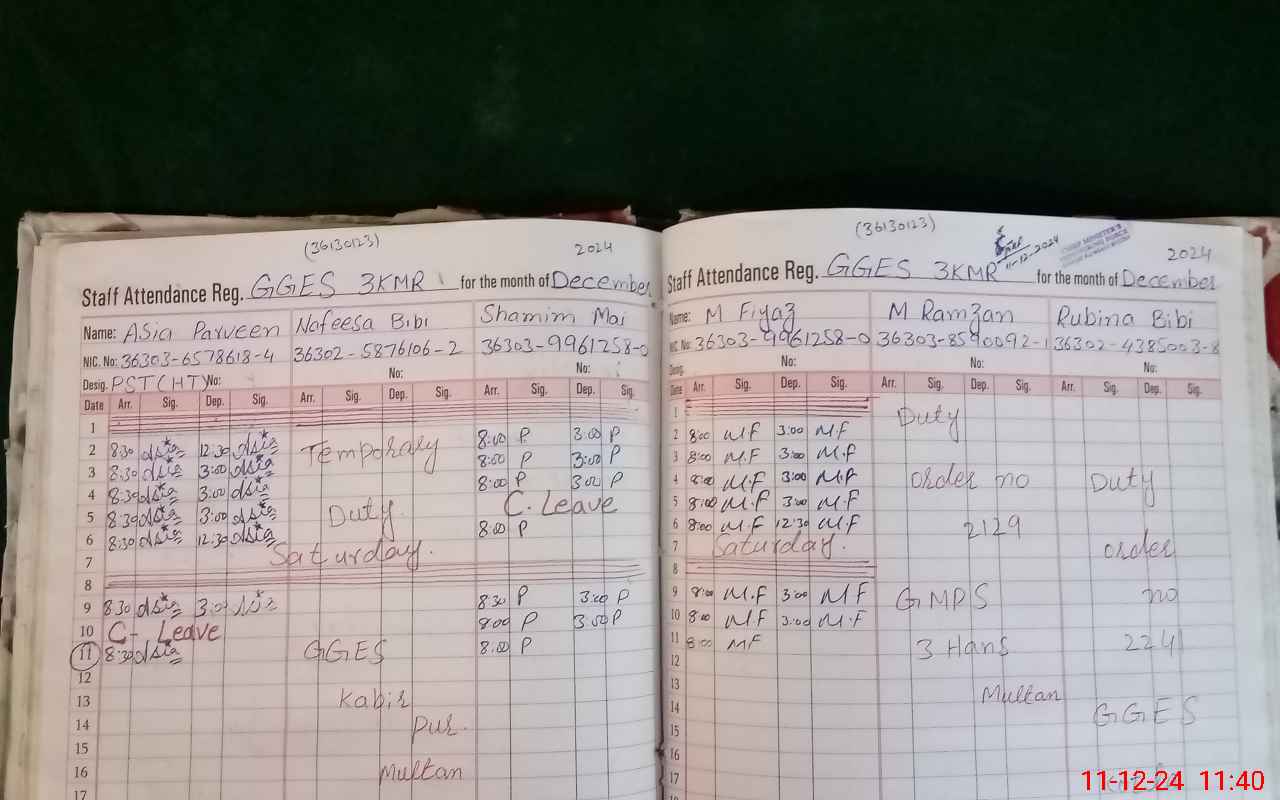 (36130123)
2024
Staff Attendance Reg. GGES 3KMR for the month of December
Name: Asia Parveen Nafeesa Bibi Shamim Mai
NIC. No: 36303-6578618-4 36302-5876106-2 36303-9961258-0
Desig. PST(HT) No: No: No:
Date Arr. Sig. Dep. Sig. Arr. Sig. Dep. Sig. Arr. Sig. Dep. Sig.
1
2 8:30 Asia 12:30 Asia Temporary 8:00 P 3:00 P
3 8:30 Asia 3:00 Asia 8:00 P 3:00 P
4 8:30 Asia 3:00 Asia 8:00 P 3:00 P
5 8:30 Asia 3:00 Asia Duty C. Leave
6 8:30 Asia 12:30 Asia 8:00 P
7 Saturday.
8
9 8:30 Asia 3:00 Asia 8:30 P 3:00 P
10 C- Leave 8:00 P 3:00 P
11 8:30 Asia GGES 8:00 P
12
13 Kabir
14 Pur.
15
16 Multan
17
(36130123)
11-12-2024
CHIEF MINISTER'S
2024
Staff Attendance Reg. GGES 3KMR for the month of December
Name: M Fiyaz M Ramzan Rubina Bibi
NIC. No: 36303-9961258-0 36303-8590092-1 36302-4385003-8
Desig. No: No: No:
Date Arr. Sig. Dep. Sig. Arr. Sig. Dep. Sig. Arr. Sig. Dep. Sig.
1 Duty
2 8:00 M.F 3:00 M.F
3 8:00 M.F 3:00 M.F
4 8:00 M.F 3:00 M.F order no Duty
5 8:00 M.F 3:00 M.F
6 8:00 M.F 12:30 M.F 2129
7 Saturday. order
8
9 8:00 M.F 3:00 MF GMPS no
10 8:00 M.F 3:00 M.F
11 8:00 MF 3 Hans 2241
12
13 Multan
14 GGES
15
16
17
11-12-24 11:40